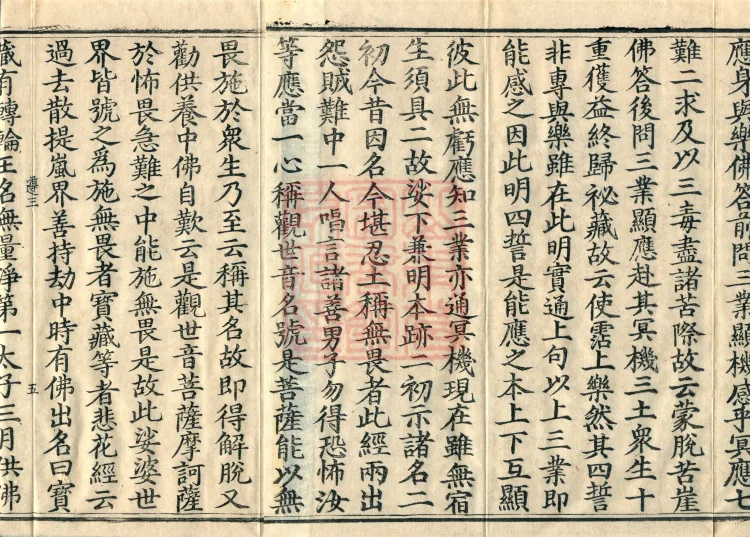 應身與樂佛答前問三業顯機感乎冥應七
難二求及以三毒盡諸苦際故云蒙脫苦崖
佛答後問三業顯應赴其冥機三土眾生十
重獲益終歸祕藏故云使霑上樂然其四誓
非專與樂雖在此明實通上句以上三業即
能感之因此明四誓是能應之本上下互顯
彼此無虧應知三業亦通冥機現在雖無宿
生須具二故娑下兼明本跡二初示諸名二
初今昔因名今堪忍土稱無畏者此經兩出
怨賊難中一人唱言諸善男子勿得恐怖汝
等應當一心稱觀世音名號是菩薩能以無
畏施於眾生乃至云稱其名故即得解脫又
勸供養中佛自歎云是觀世音菩薩摩訶薩
於怖畏急難之中能施無畏是故此娑婆世
界皆號之為施無畏者寶藏等者悲花經云
過去散提嵐界善持劫中時有佛出名曰寶
遵三
五
藏有轉輪王名無量淨第一太子三月供佛